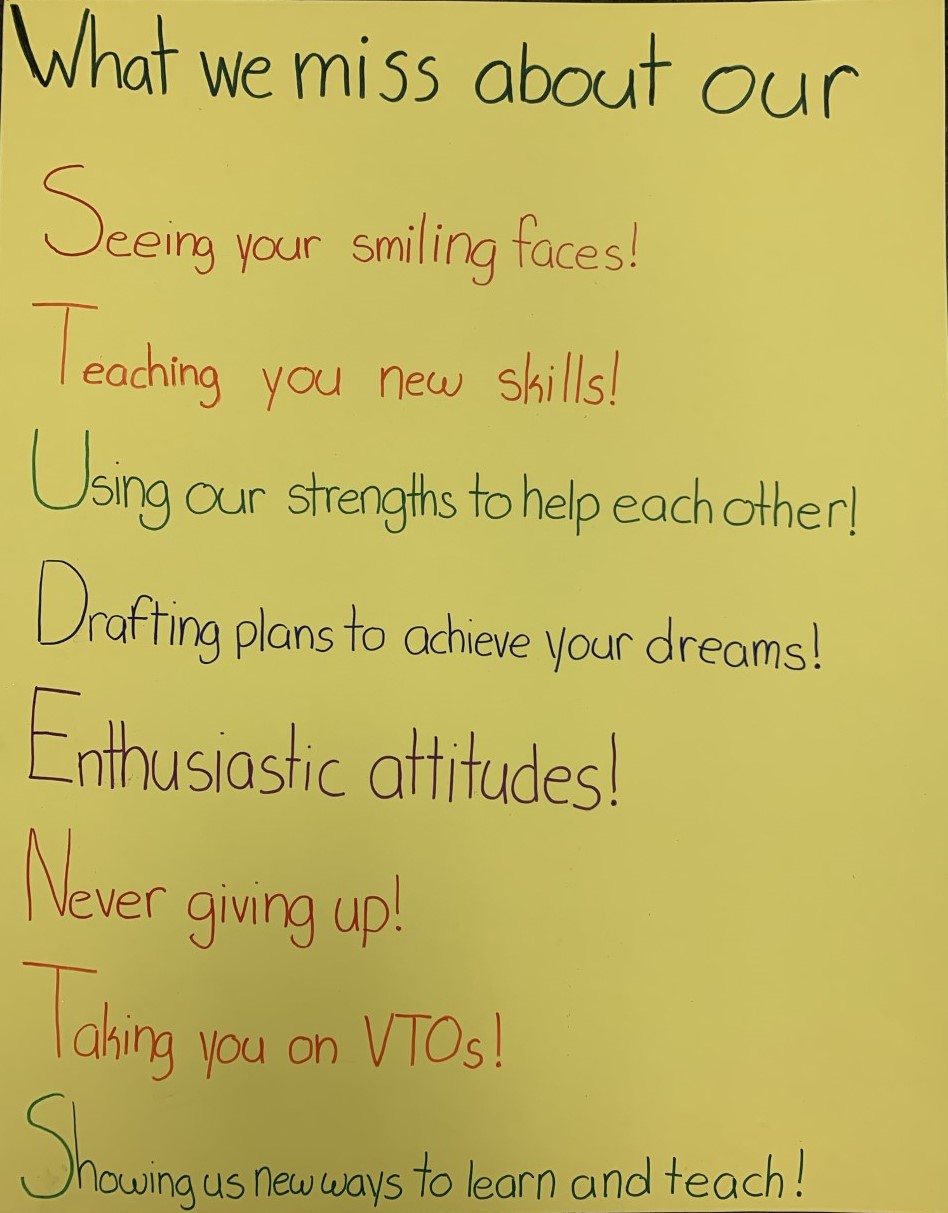 What we miss about our
Seeing your smiling faces!
Teaching you new skills!
Using our strengths to help each other!
Drafting plans to achieve your dreams!
Enthusiastic attitudes!
Never giving up!
Taking you on VTOs!
Showing us new ways to learn and teach!